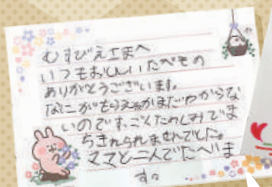 むすびえさまへ
いつもおいしいたべもの
ありがとうございます。
なにがもらえるかまだわからな
いのです。ごくたのしみでま
ちきれられませんでした。
ママと二人でたべま
す。